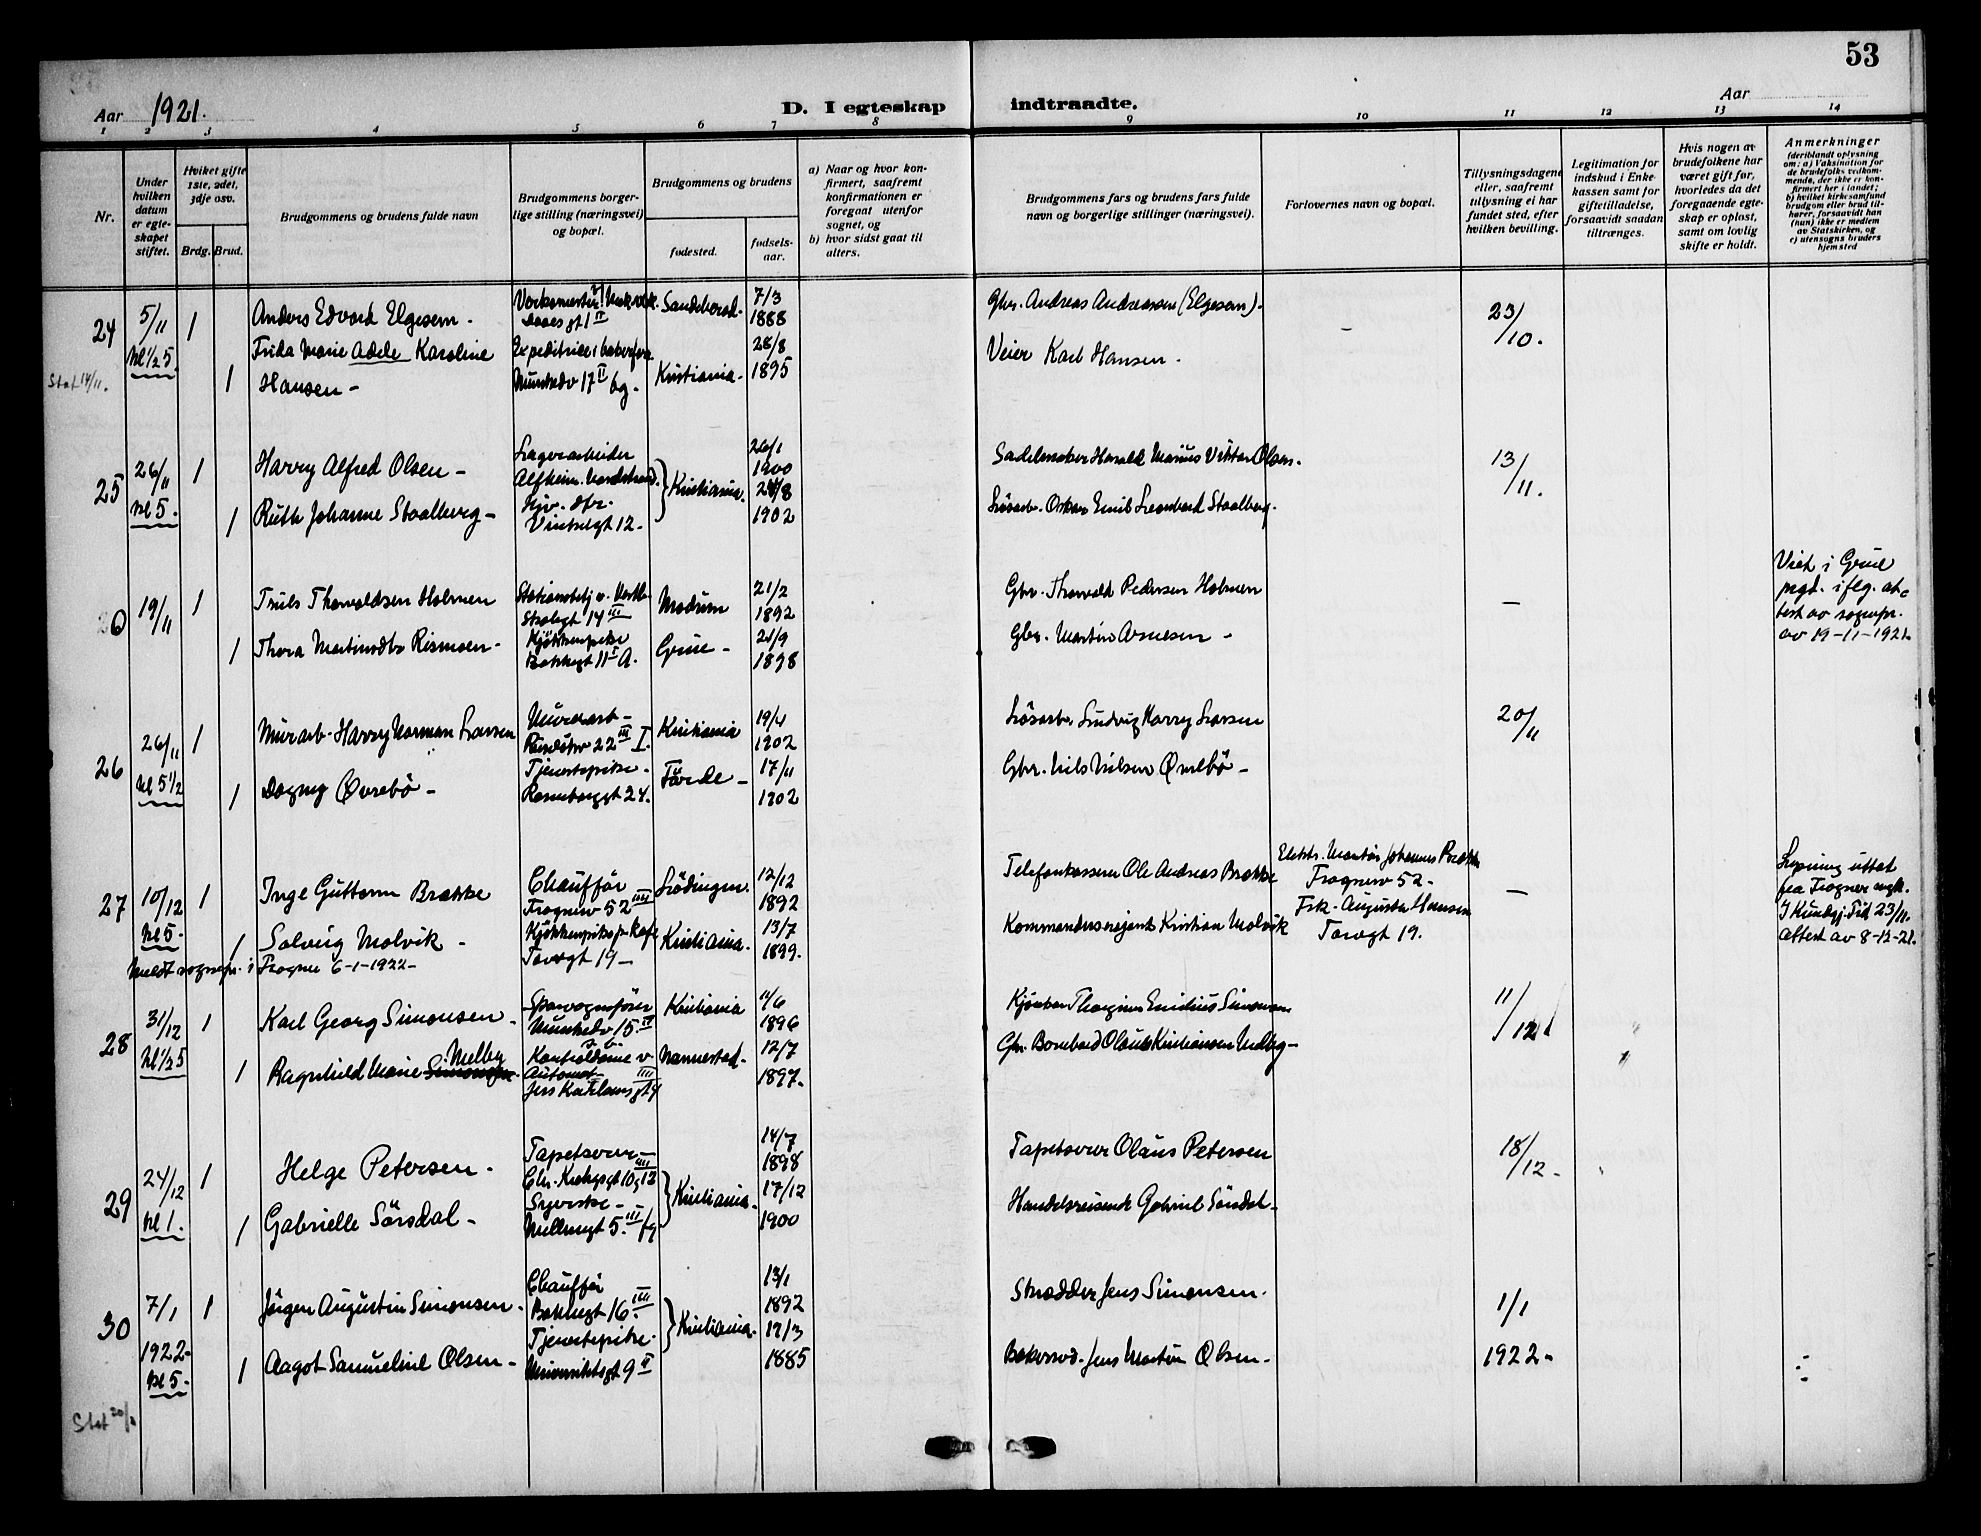 53
Aar 1921.
D. I egteskap indtraadte.
Aar
1 2 3 4 5 6 7 8 9 10 11 12 13 14
Nr.
Under hvilken datum er egteskapet stiftet.
Hviket gifte 1ste, 2det, 3dje osv.
Brdg. Brud.
Brudgommens og brudens fulde navn
Brudgommens borgerlige stilling (næringsvei) og bopæl.
Brudgommens og brudens
fødested.
fødselsaar.
a) Naar og hvor konfirmert, saafremt konfirmationen er foregaat utenfor sognet, og
b) hvor sidst gaat til alters.
Brudgommens fars og brudens fars fulde navn og borgerlige stillinger (næringsvei).
Forlovernes navn og bopæl.
Tillysningsdagene eller, saafremt tillysning ei har fundet sted, efter hvilken bevilling.
Legitimation for indskud i Enkekassen samt for giftetilladelse, forsaavidt saadan tiltrænges.
Hvis nogen av brudefolkene har været gift før, hvorledes da det foregaaende egteskap er opløst, samt om lovlig skifte er holdt.
Anmerkninger
(deriblandt oplysning om: a) Vaksination for de brudefolks vedkommende, der ikke er konfirmert her i landet; b) hvilket kirkesamfund brudgom eller brud tilhører, forsaavidt han (hun) ikke er medlem av Statskirken, og c) utensogns bruders hjemsted
24 5/11 kl 1/2 5. 1 Anders Edvard Elgesem - Daaes gt 1 II Sandeherad. 7/3 1888 Gbr. Andreas Andreassen (Elgesem). - 23/10.
Stat 14/11. 1 Frida Marie Adele Karoline Hansen - Expeditrice i bakerforr. Munkedv 17 II bg. Kristiania. 28/8 1895 Veier Karl Hansen.
25 26/11 kl 5. 1 Harry Alfred Olsen - Lagerarbeider Alfheim. Nordstrand. Kristiania. 26/1 1900 Sadelmaker Harald Marius Viktor Olsen. 13/11.
1 Ruth Johanne Staalberg - Hjv. dtr. 12. 24/8 1902 Løsarb. Oskar Emil Leonhard Staalberg.
26 19/11 1 Truls Thorvaldsen Holmen 14 III Modum 21/2 1892 Gbr. Thorvald Pedersen Holmen - Viet i Grue
prgd. iflg. attest av sognepr.
av 19-11-1921.
1 Thora Martinsdtr Rismoen - Kjøkkenpike Bakkegt 11 I A. Grue - 21/9 1898 Gbr. Martin Arnesen -
26 26/11 kl 5 1/2 1 Murarb. Harry Norman Larsen Murerarb - 22 III I. Kristiania 19/4 1902 Løsarb. Ludvig Harry Larsen 20/11
1 Dagny Øvrebö - Tjenestepike - Rosenborggt 24. Förde - 17/11 1902 Gbr. Nils Nilsen Øvrebö -
27 10/12 kl 5. 1 Inge Guttorm Brække Chaufför Frognerv 52 IIII Lödingen. 12/12 1892 Telefonkasserer Ole Andreas Brække Elektr. Montör Johannes Brække Frognerv 52 - - Lysning uttat
fra Frogner mgk.
I Kundgj. Tid 23/11.
Attest av 8-12-21.
1 Solveig Molvik - Kjøkkenpike p. kafe Torvgt 19 - Kristiania. 13/7 1899. Kommandersersjant Kristian Molvik Frk. Augusta Hansen Torvgt 19.
Meldt sognepr. i Frogner 6-1-1922 -
28 31/12 kl 1/2 5 1 Karl Georg Simonsen - Sporvognsfører Munkedv 15. II Kristiania 11/6 1896 Thorgrim Emilius Simonsen 11/12
1 Ragnhild Marie Simonsen. Melby Kontroldame v Automat Nannestad. 12/7 1897. Gbr. Bernhard Olaus Kristiansen Melby -
29 24/12 kl 1. 1 Helge Petersen. Tapetserer - Chr. Kroghsgt Kristiania. 14/7 1898 Tapetserer Olaus Petersen 18/12 -
1 Gabrielle Sörsdal - Syerske - Møllergt 5. III fg 17/12 1900 Handelsreisende Gabriel Sörsdal -
30 7/1 1922 - kl 5 - 1 Jörgen Augustin Simonsen. Chaufför Bakkegt 16. III Kristiania. 13/1 1892 Skrædder Jens Simonsen. 1/1 1922.
1 Aagot Samueline Olsen - Tjenestepike. Universitetsgt 9 II 12/3 1885 Bakersv. Jens Martin Olsen.
Stat 20/1